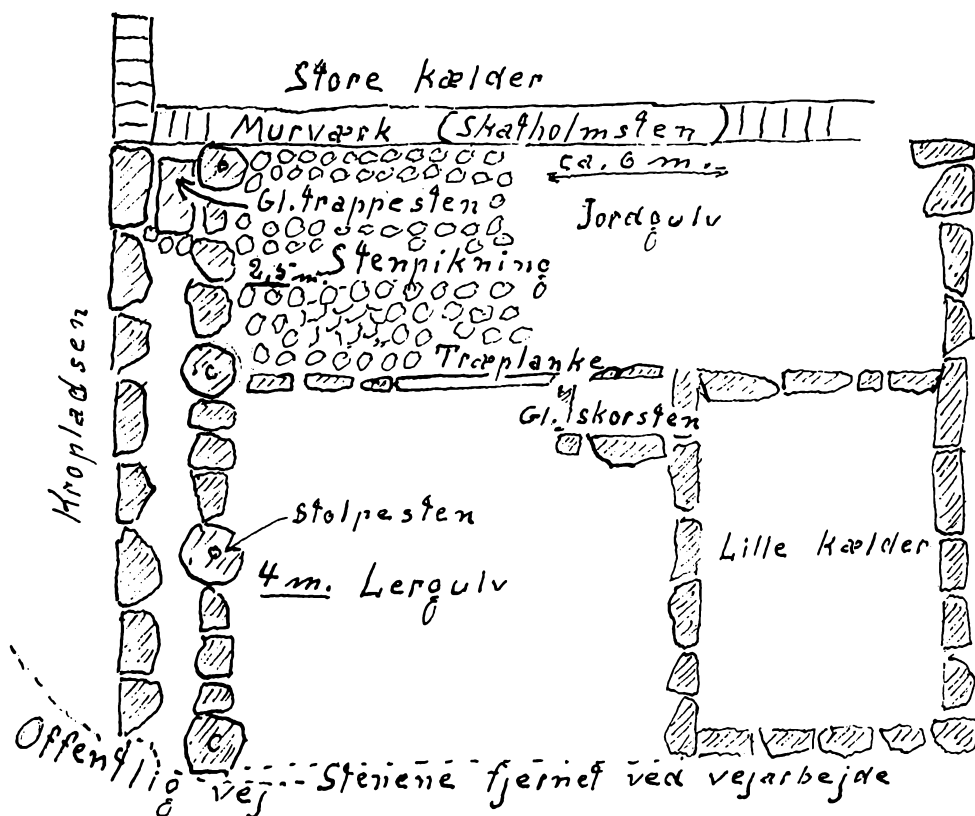 Store kælder
Murværk (Skatholmsten)
ca. 6 m.
Gl. trappesten
Jordgulv
2,5 m. Stenpikning
Træplanke
Gl. skorsten
Kropladsen
Stolpesten
Lille kælder
4 m. Lergulv
Offentlig vej
Stenene fjernet ved vejarbejde